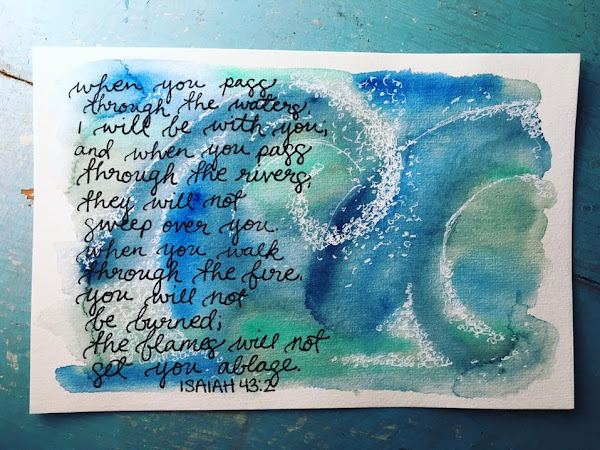 when you pass
through the waters
I will be with you;
and when you pass
through the rivers,
they will not
sweep over you.
when you walk
through the fire.
you will not
be burned;
the flames will not
set you ablaze.
ISAIAH 43:2